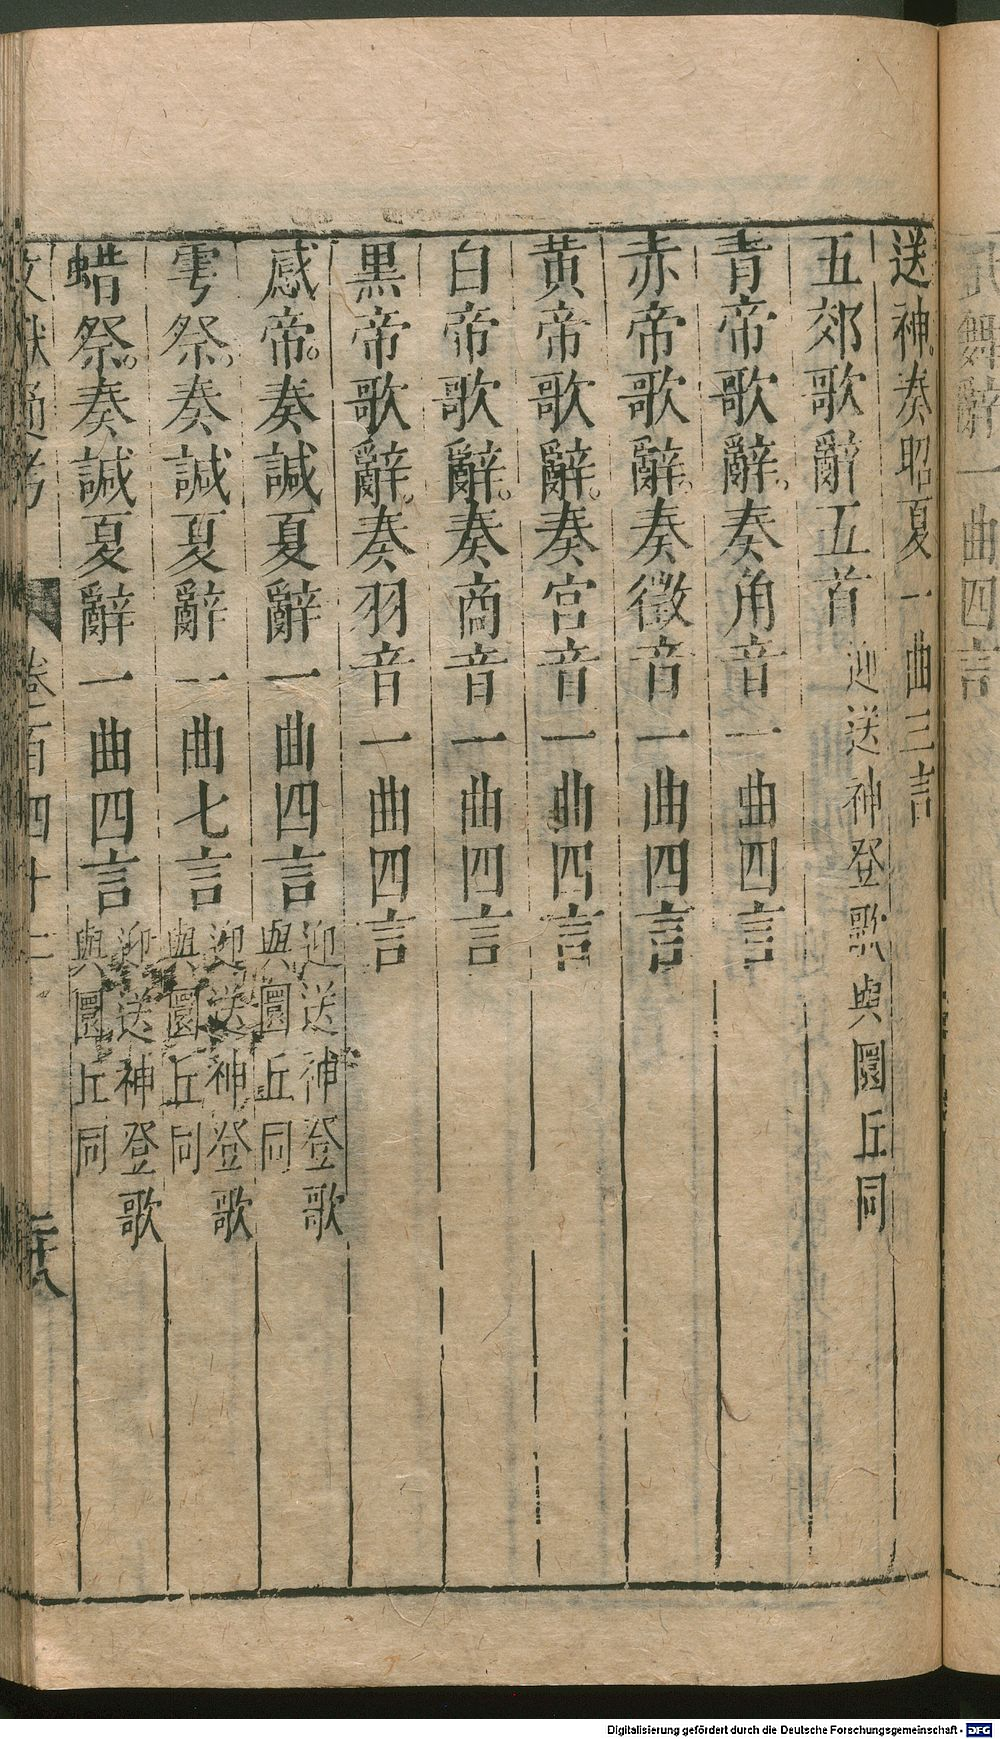 武舞辭一曲四言
送神。奏昭夏一曲三言
五郊歌辭五首迎送神登歌與圜丘同
青帝歌辭。奏角音一曲四言
赤帝歌辭。奏徵音一曲四言
黄帝歌辭。奏宮音一曲四言
白帝歌辭。奏商音一曲四言
黒帝歌辭。奏羽音一曲四言
感帝。奏諴夏辭一曲四言迎送神登歌與圜丘同
雩祭。奏諴夏辭一曲七言迎送神登歌與圜丘同
蜡祭。奏諴夏辭一曲四言迎送神登歌與圜丘同
文獻通考 卷一百四十二 二十八
Digitalisierung gefördert durch die Deutsche Forschungsgemeinschaft - DFG